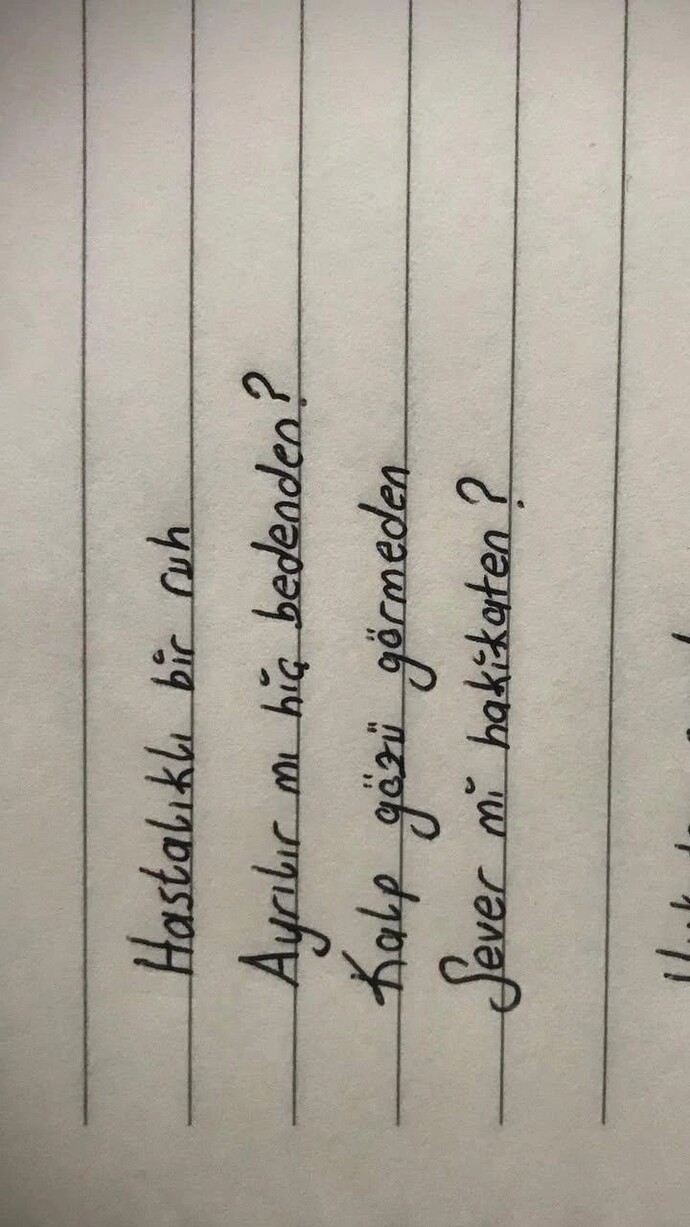 Hastalıklı bir ruh
Ayrılır mı hiç bedenden?
Kalp gözü görmeden
Sever mi hakikaten?